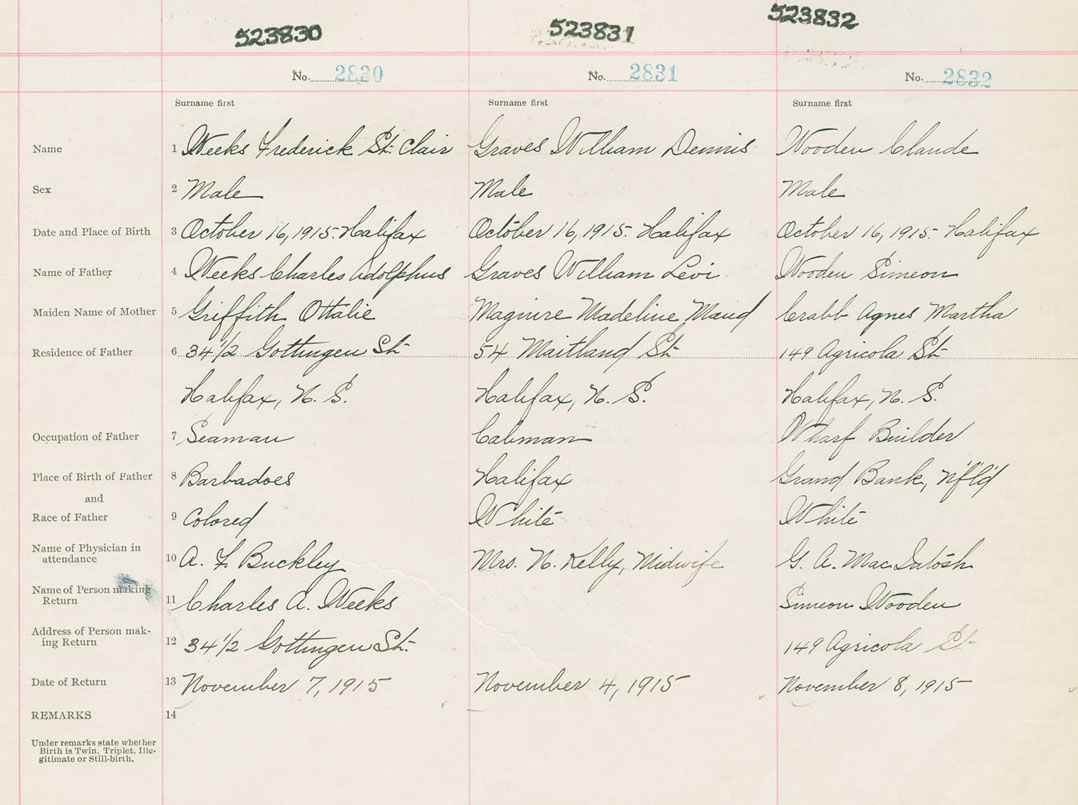 523830 523831 523832
No. 2830 No. 2831 No. 2832
Surname first Surname first Surname first
Name 1 Weeks Frederick St. Clair Graves William Dennis Wooden Claude
Sex 2 Male Male Male
Date and Place of Birth 3 October 16, 1915- Halifax October 16, 1915- Halifax October 16, 1915- Halifax
Name of Father 4 Weeks Charles Adolphus Graves William Levi Wooden Simeon
Maiden Name of Mother 5 Griffith Ottalie Maguire Madeline Maud Crabb Agnes Martha
Residence of Father 6 34 1/2 Gottingen St. 54 Maitland St 149 Agricola St
Halifax, N. S. Halifax, N. S. Halifax, N. S.
Occupation of Father 7 Seaman Cabman Wharf Builder
Place of Birth of Father 8 Barbadoes Halifax Grand Bank, N'f'l'd
and
Race of Father 9 Colored White White
Name of Physician in
attendance 10 A. F. Buckley Mrs. N. Kelly, Midwife G. A. MacIntosh
Name of Person making
Return 11 Charles A. Weeks Simeon Wooden
Address of Person mak-
ing Return 12 34 1/2 Gottingen St. 149 Agricola St
Date of Return 13 November 7, 1915 November 4, 1915 November 8, 1915
REMARKS 14
Under remarks state whether
Birth is Twin, Triplet, Ille-
gitimate or Still-birth.